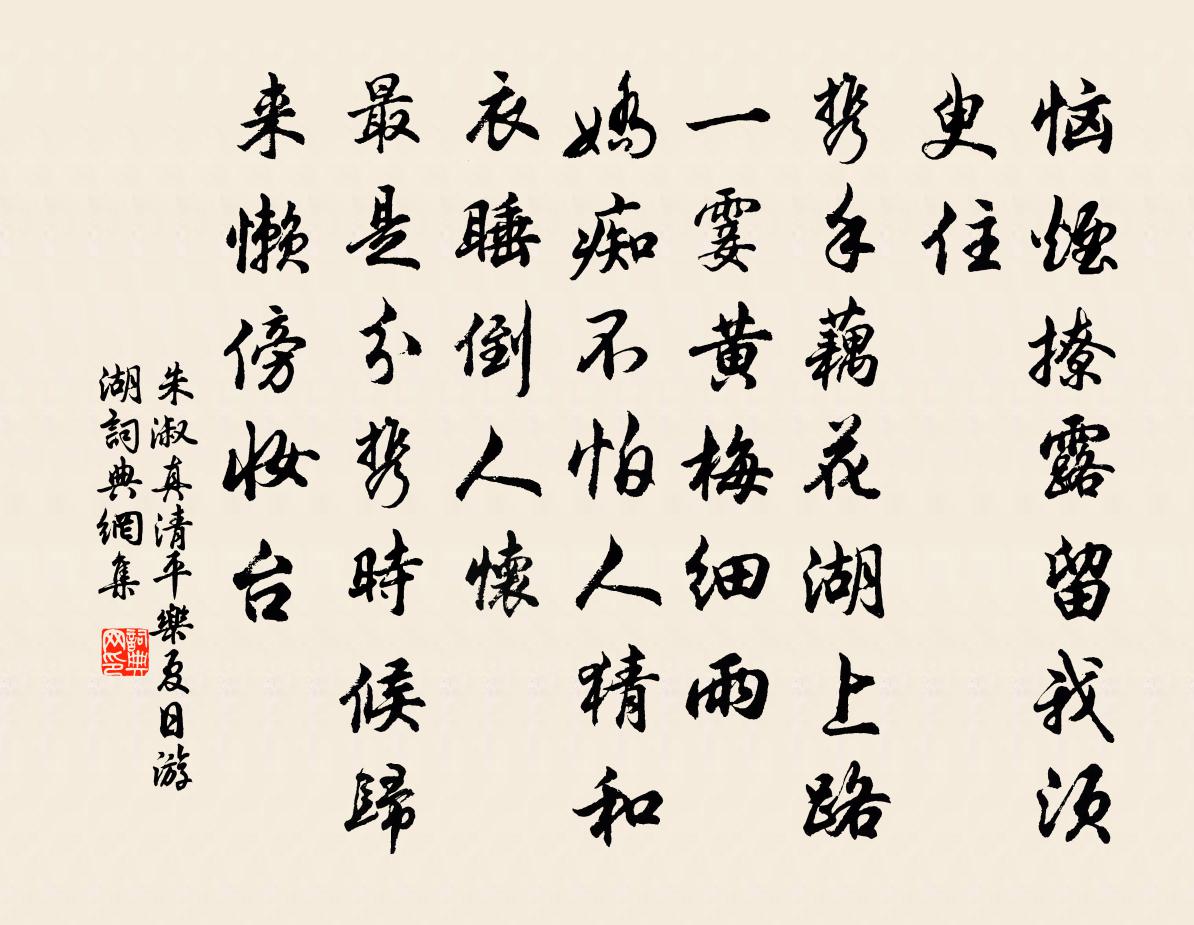 恼煙撩露留我须
臾住
携手藕花湖上路
一霎黄梅细雨
嬌痴不怕人猜和
衣睡倒人懷
最是分携時候歸
来懶傍妆台
朱淑真清平樂夏日游
湖詞典網集
詞典网印